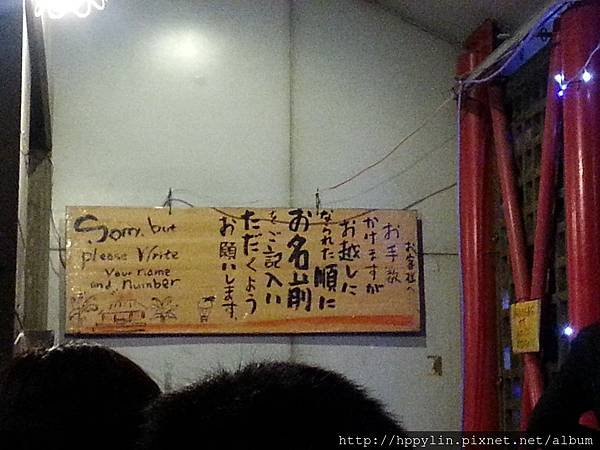 お客様へ
お手数
かけますが
お越しに
なられた順に
お名前
をご記入い
ただくよう
お願いします。
Sorry, but
please Write
Your name
and, number
http://hppylin.pixnet.net/album